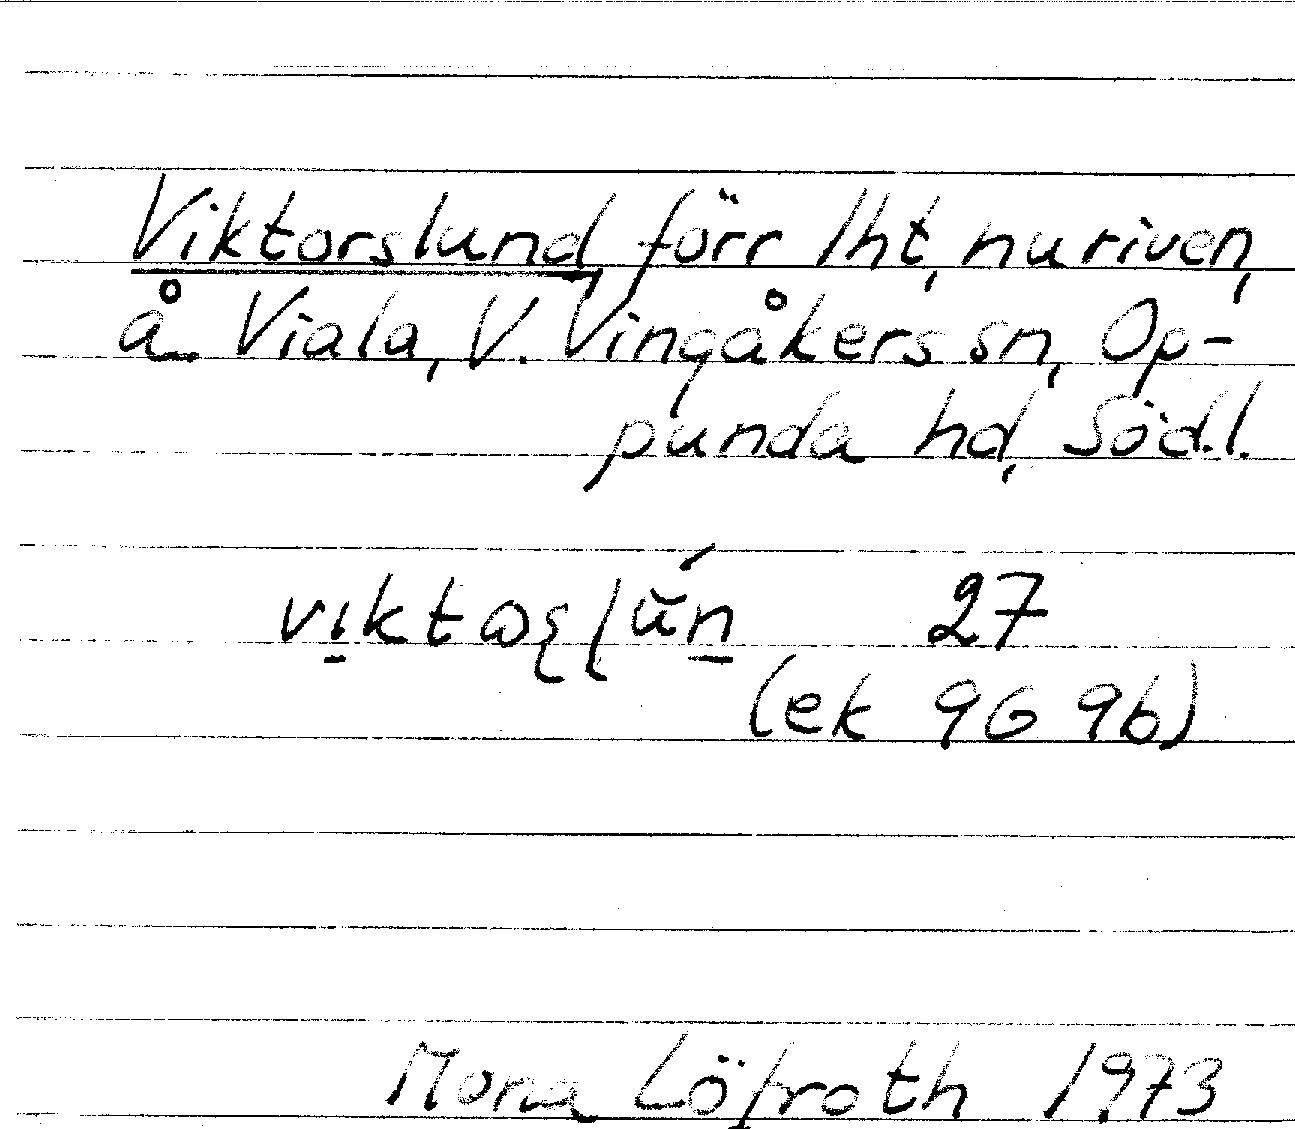 Viktorslund förr lht, nu riven,
å Viala, V. Vingåkers sn, Op-
punda hd, Södl.
27
(ek 9G 9b)
Mona Löfroth 1973